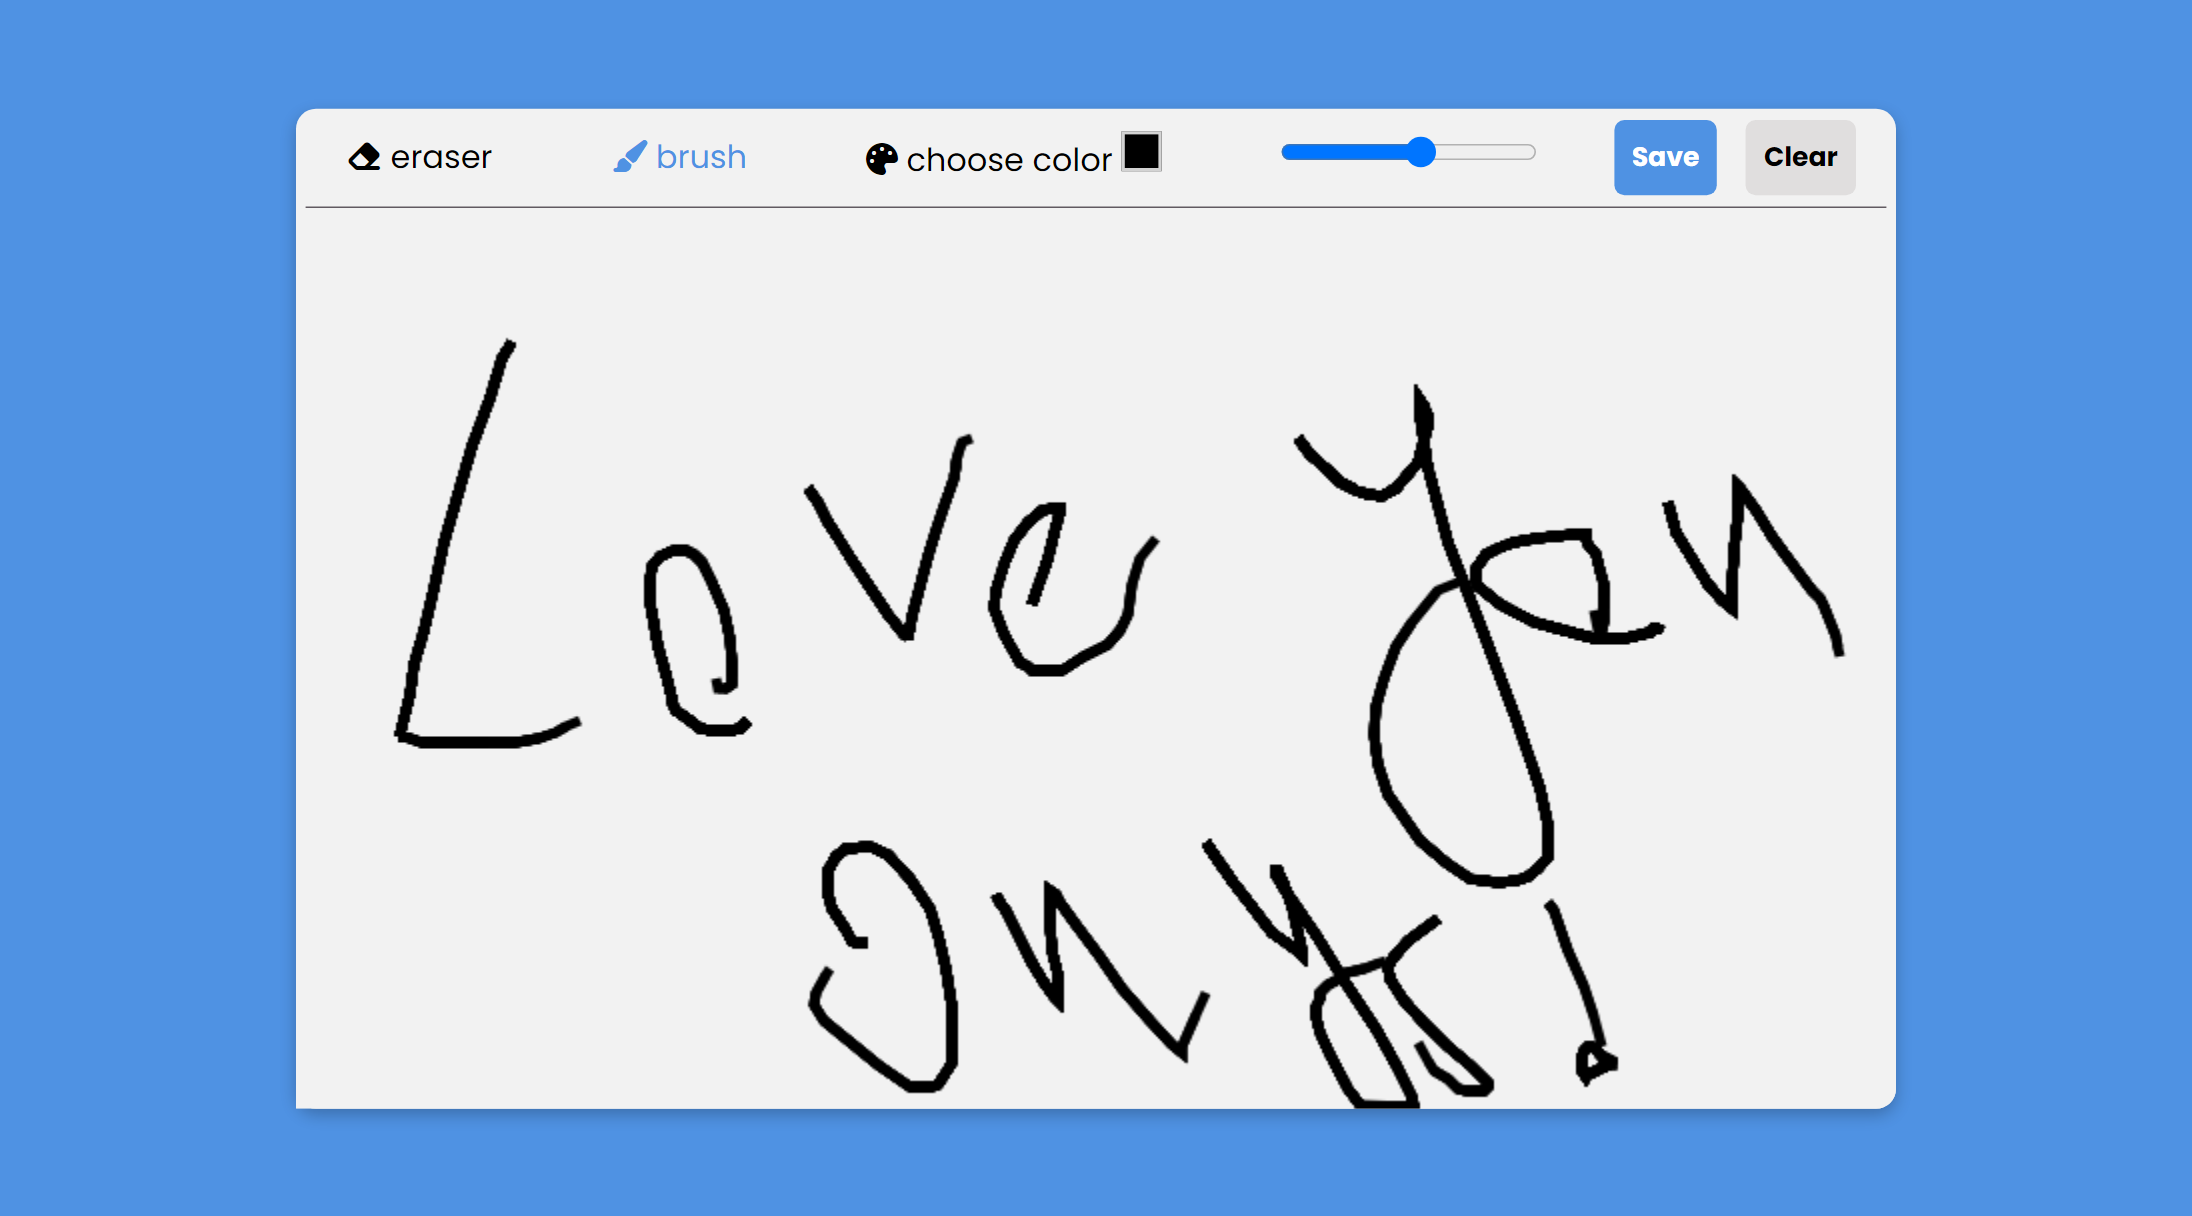 eraser brush choose color Save Clear
Love you
guys!